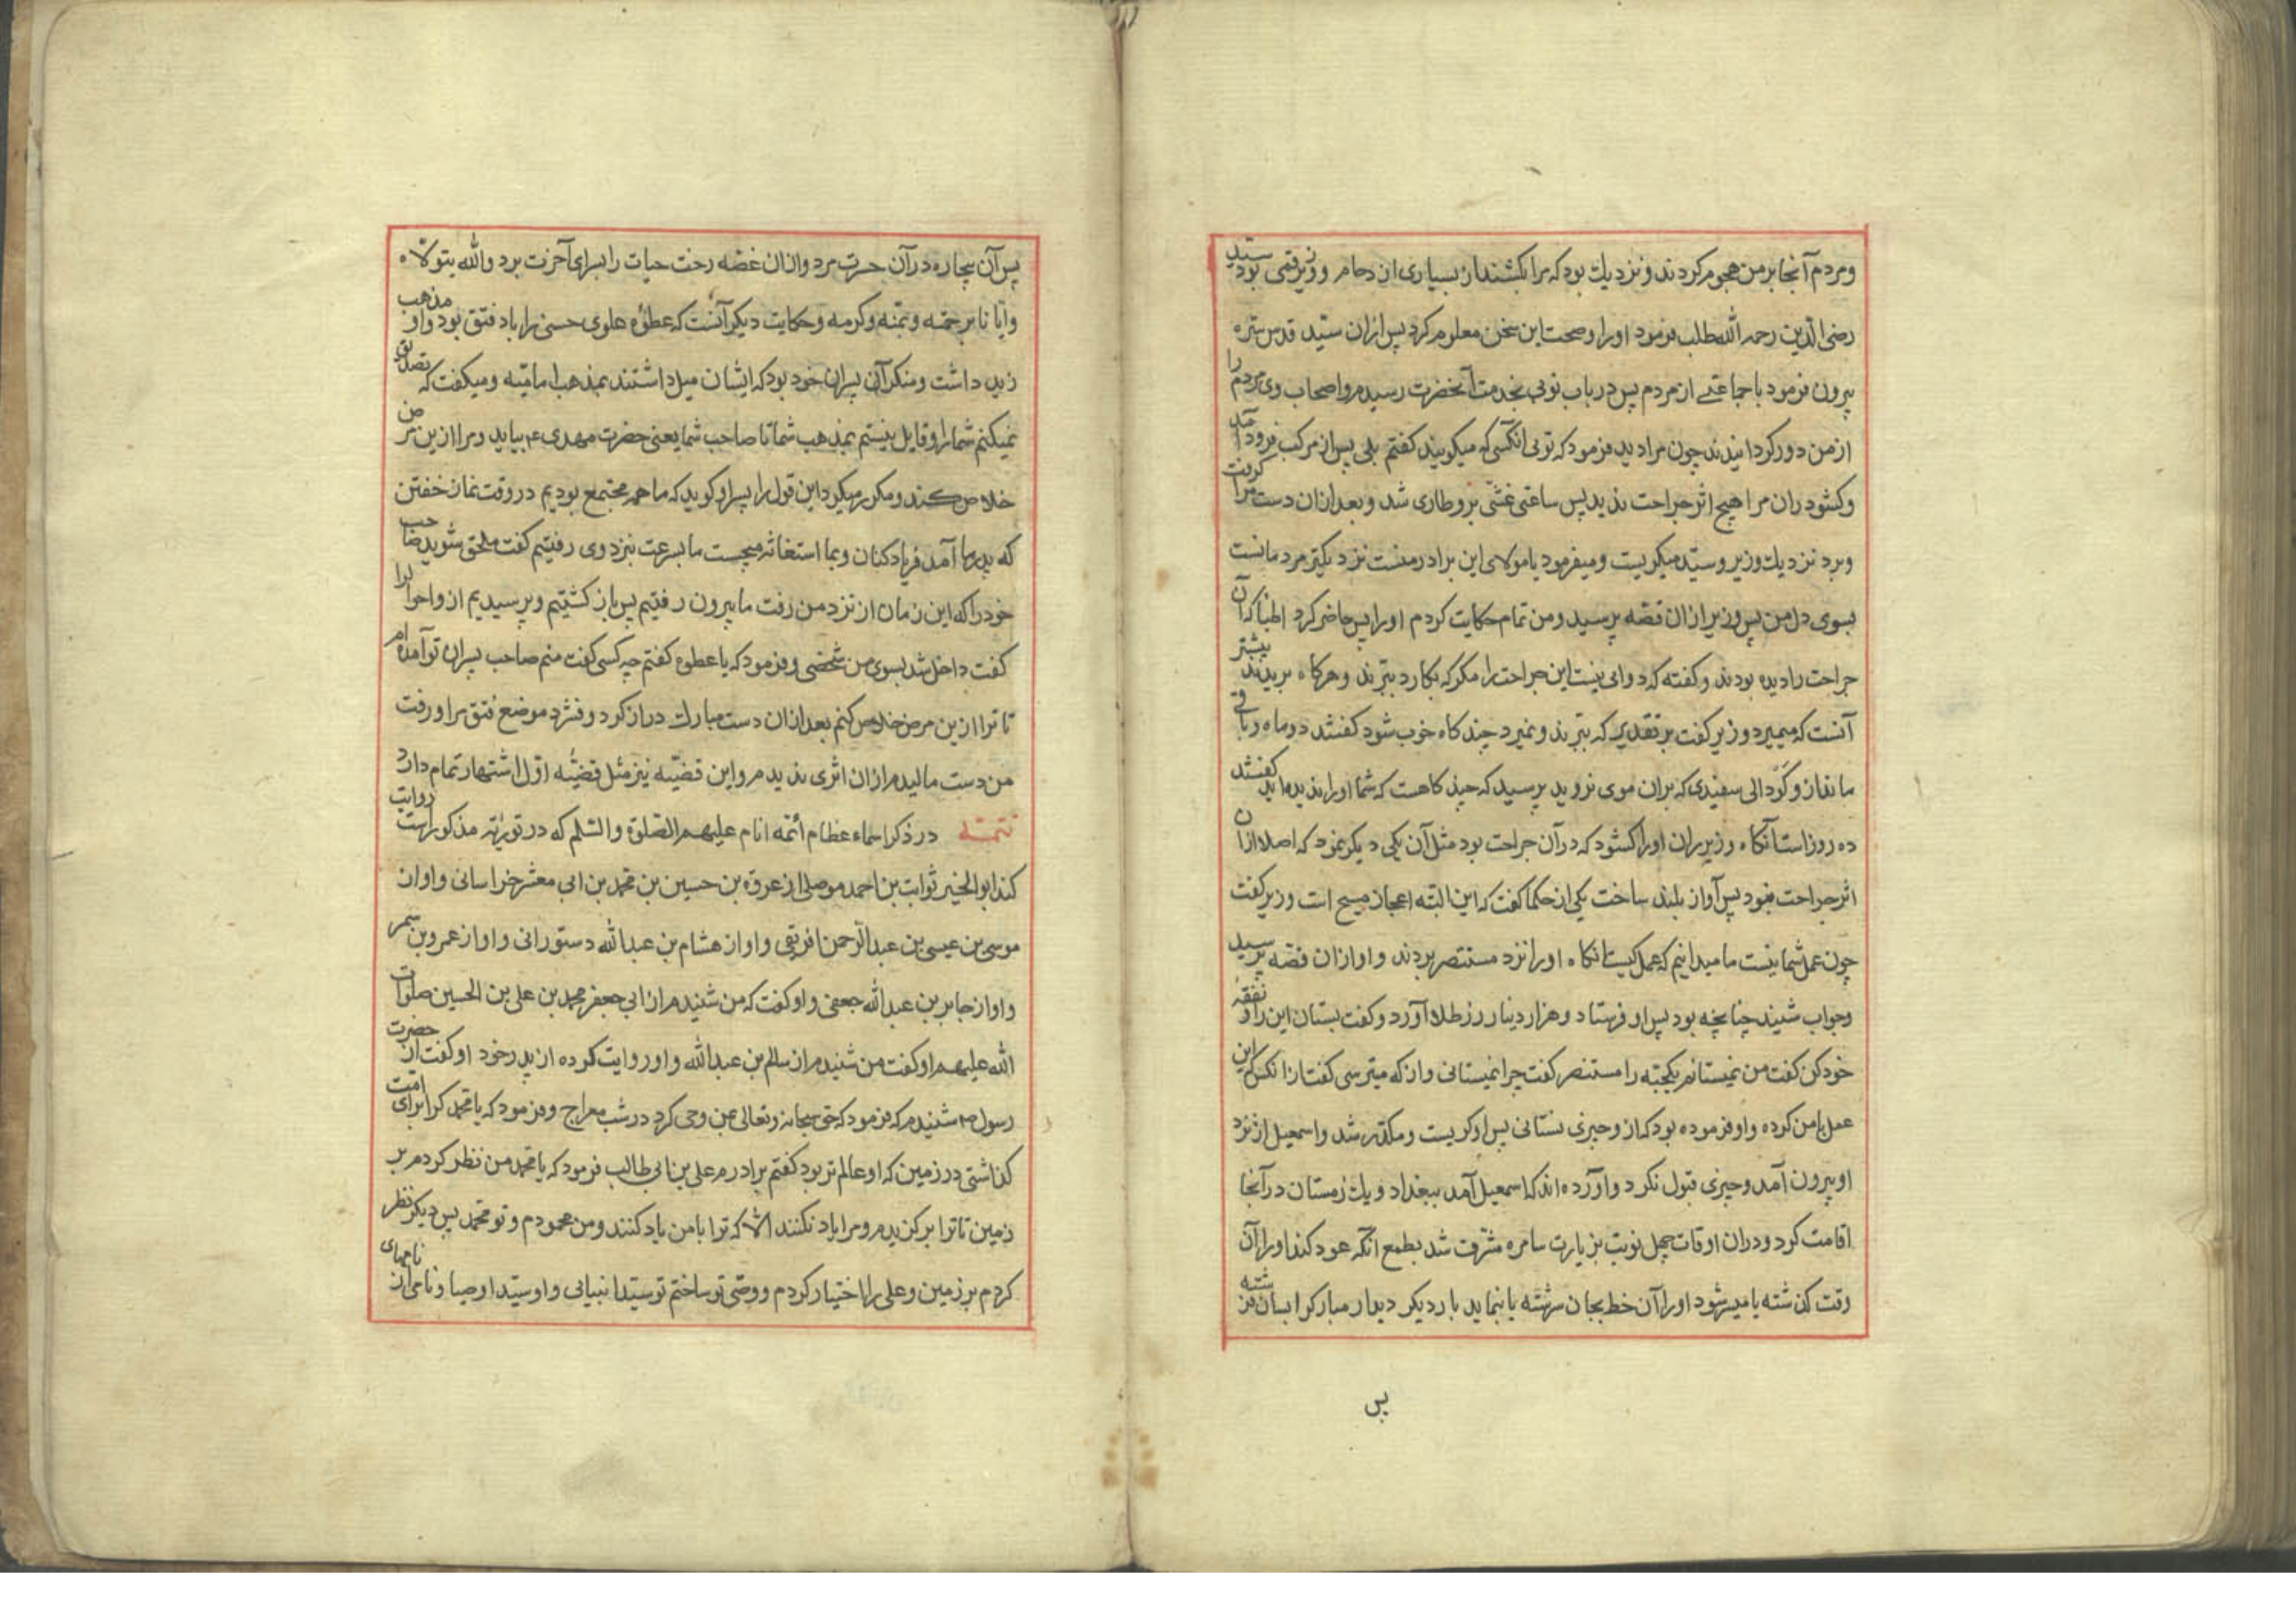 ومردم آنجا بر من هجوم کردند ونزدیك بود که مرا بکشند از بسیاری ازدحام ووزیر قمی بود سید
رضی الدین رحمه الله طلب فرمود اورا وصحت این سخن معلوم کرد پس ازان سید قدس سره
بیرون فرمود با جماعتی از مردم پس در باب نوبی بخدمت آنحضرت رسیدم واصحاب وی مردم را
از من دور کردانیدند چون مرا دید فرمود که تویی آنکسی که میکویند کفتم بلی پس از مرکب فرود آمد
وکشود ران مرا هیچ اثر جراحت ندید پس ساعتی غشی برو طاری شد وبعد ازان دست مرا کرفت
وبرد نزدیك وزیر وسید میکریست ومیفرمود یا مولای این برادر منست نزدیکتر مردمانست
بسوی دل من پس وزیر ازان قصه پرسید ومن تمام حکایت کردم اورا پس حاضر کرد اطبا که آن
جراحت را دیده بودند وکفته که دوایی نیست این جراحت را مکر که بکارد ببرند وهرکاه ببریدند بیشتر
آنست که میمیرد وزیر کفت بر تقدیر که ببرند ونمیرد چند کاه خوب شود کفتند دو ماه وباقی
ماند از و کودالی سفیدی که بران موی نروید پرسید که چند کاهست که شما اورا ندیده‌اید کفتند
ده روز است آنکاه وزیر ران اورا کشود که در آن جراحت بود مثل آن یکی دیکر بنمود که اصلا ازان
اثر جراحت نبود پس آواز بلند ساخت یکی از حکما کفت که این البته اعجاز مسیح است وزیر کفت
چون عمل شما نیست ما میدانیم که عمل کیست آنکاه اورا نزد مستنصر بردند واو ازان قصه پرسید
وجواب شنید چنانچه بود پس او فرستاد وهزار دینار زر طلا آورد وکفت بستان این را ونفقهٔ
خود کن کفت من نمیستانم یکحبه را مستنصر کفت چرا نمیستانی واز که میترسی کفت ازآنکس که این
عمل با من کرده واو فرموده بود که از و چیزی نستانی پس او کریست ومکدر شد واسمعیل از نزد
او بیرون آمد وچیزی قبول نکرد وآورده‌اند که اسمعیل آمد ببغداد ویك زمستان در آنجا
اقامت کرد ودران اوقات چهل نوبت بزیارت سامره مشرف شد بطمع آنکه عود کند اورا آن
وقت کذشته یا میسر شود اورا آن خط بجان سرشته یا بنماید بار دیکر دیدار مبارکرا بسان فرشته
پس
پس آن بیچاره در آن حسرت مرد وازان غصه رخت حیات را بسرای آخرت برد والله یتولاه
وایانا برحمته ومنه وکرمه وحکایت دیکر آنست که عطوه علوی حسنی را باد فتق بود واو مذهب
زید داشت ومنکر آن پسران خود بود که ایشان میل داشتند بمذهب امامیه ومیکفت که تصدیق
نمیکنم شمارا وقایل نیستم بمذهب شما تا صاحب شما یعنی حضرت مهدی ع بیاید ومرا ازین مرض
خلاص کند ومکرر میکرد این قول را پسر او کوید که ما همه مجتمع بودیم در وقت نماز خفتن
که پدر ما آمد فریاد کنان وبما استغاثه میجست ما بسرعت نزد وی رفتیم کفت ملحق شوید صاحب
خود را که این زمان از نزد من رفت ما بیرون رفتیم پس باز کشتیم وپرسیدیم از و احوالرا
کفت داخل شد بسوی من شخصی وفرمود که یا عطوه کفتم چه کسی کفت منم صاحب پسران تو آمده‌ام
تا ترا ازین مرض خلاص کنم بعد ازان دست مبارك دراز کرد وفشرد موضع فتق مرا ورفت
من دست مالیدم ازان اثری ندیدم واین قضیه نیز مثل قضیهٔ اول اشتهار تمام دارد
تتمه در ذکر اسماء عظام أئمه انام علیهم الصلوة والسلم که در توریه مذکور است روایت
کند ابو الخیر ثوابت بن احمد موصلی از عروه بن حسین بن محمد بن ابی معشر خراسانی واو از
موسی بن عیسی بن عبد الرحمن افریقی واو از هشام بن عبد الله دستورانی واو از عمرو بن سمر
واو از جابر بن عبد الله جعفی واو کفت که من شنیدم از ابی جعفر محمد بن علی بن الحسین صلوات
الله علیهم او کفت من شنیدم از سالم بن عبد الله واو روایت کرده از پدر خود او کفت از حضرت
رسول ص شنیدم که فرمود که حق سبحانه وتعالی بمن وحی کرد در شب معراج وفرمود که یا محمد کرا برای امت
کذاشتی در زمین که او عالم تر بود کفتم برادرم علی بن ابی طالب فرمود که یا محمد من نظر کردم بر
زمین تا ترا برکزیدم ومرا یاد نکنند الا که ترا با من یاد کنند ومن محمودم وتو محمد پس دیکر نظر
کردم بر زمین وعلی را اختیار کردم ووصی تو ساختم تو سید انبیائی واو سید اوصیا ونامی از نامهای